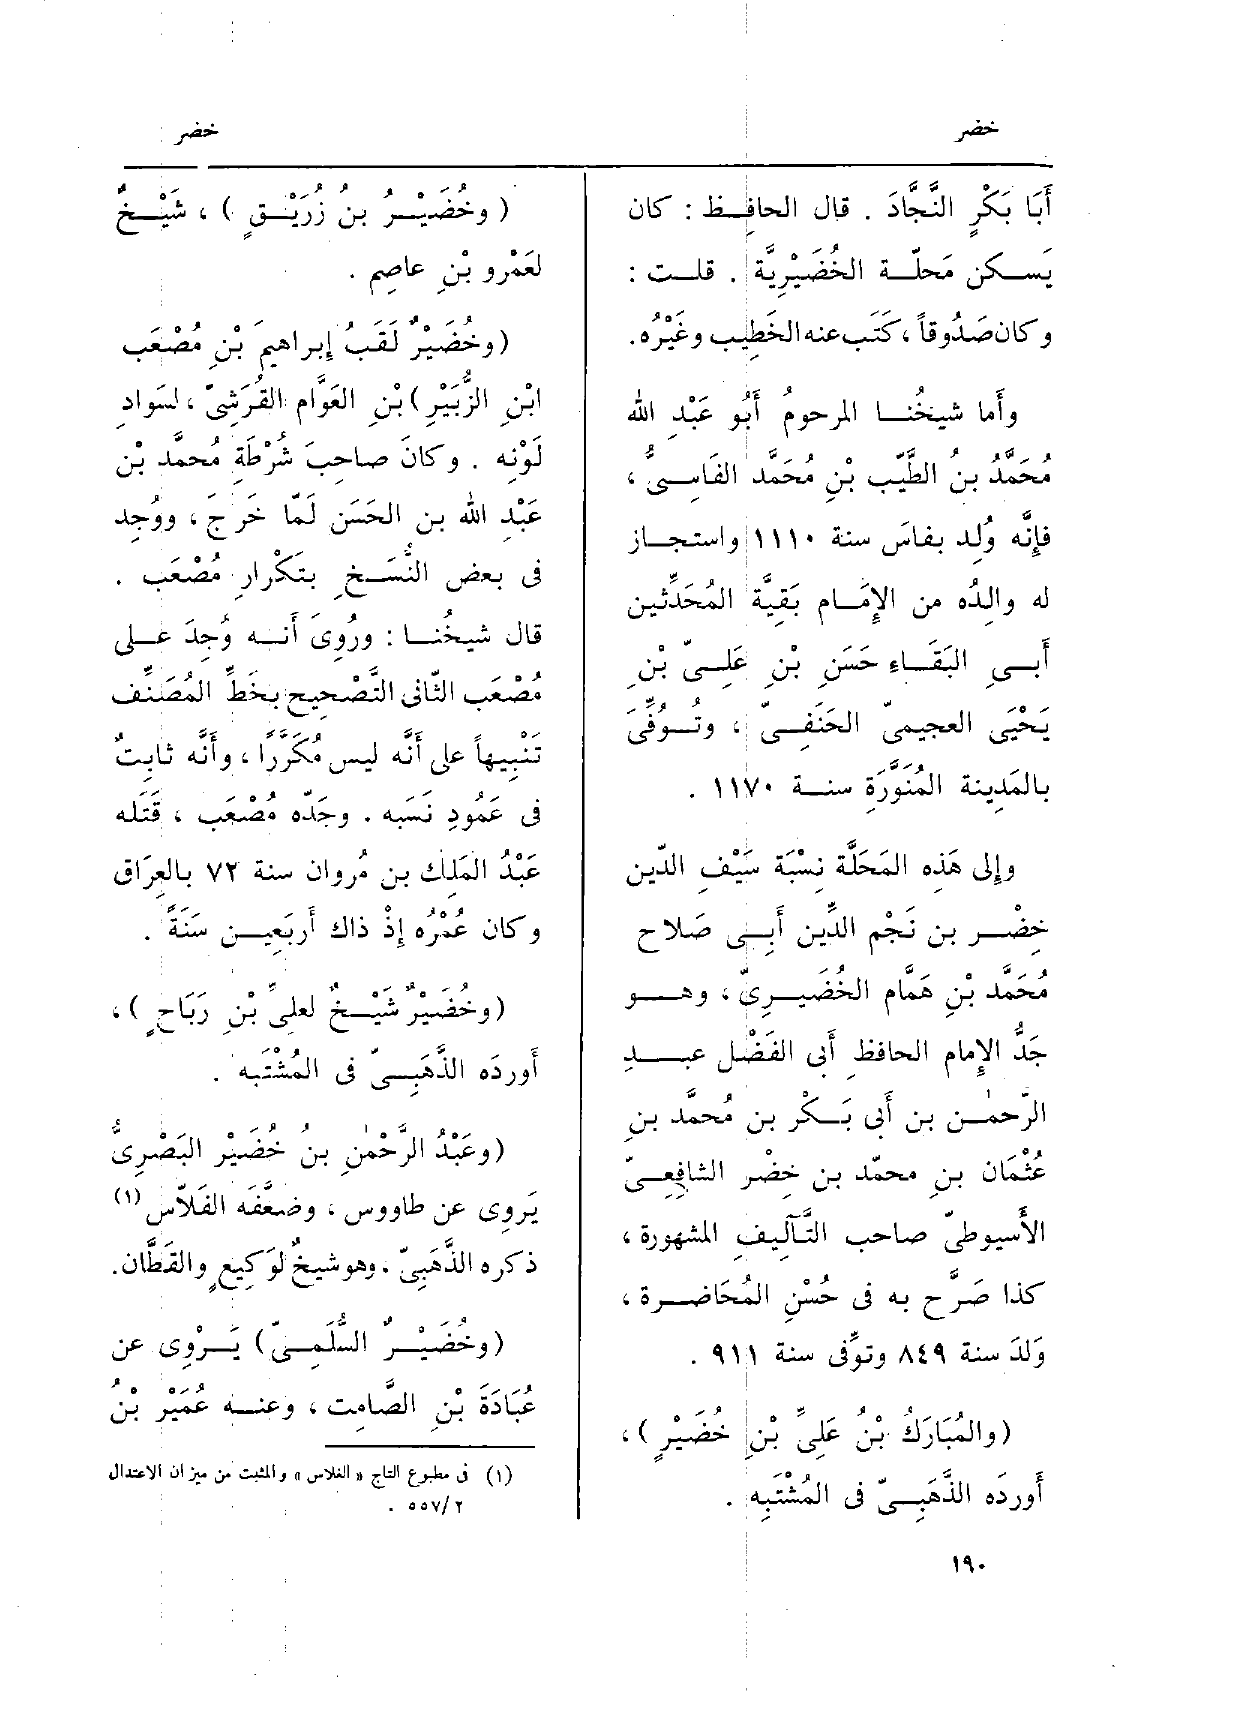 خضر
خضر
أَبَا بَكْرٍ النَّجَّادَ . قال الحافِــظ : كان
يَســكن مَحلَّــة الخُضَيْرِيَّة . قلــت :
وكان صَدُوقاً ، كَتَب عنه الخَطِيب وغَيْرُه .
وأَما شيخُنــا المرحومُ أَبُو عَبْدِ الله
مُحَمَّدُ بن الطَّيّب بْنِ مُحَمَّد الفَاسِــىُّ ،
فإِنَّه وُلِد بفاسَ سنة ١١١٠ واستجــاز
له والِدُه من الإِمَــام بَقِيَّة المُحَدِّثين
أَبــى البَقَــاءِ حَسَنِ بْنِ عَلِــىّ بْنِ
يَحْيَى العجيمىّ الحَنَفِــىّ ، وتُــوُفِّىَ
بالمَدِينة المُنَوَّرَةِ سنــة ١١٧٠ .
وإِلى هَذِه المَحَلَّة نِسْبَة سَيْفِ الدّين
خِضْــر بن نَجْم الدِّين أَبِــى صَلاح
مُحَمَّد بْنِ هَمَّام الخُضَيــرِىّ ، وهــو
جَدُّ الإِمام الحافظِ أَبى الفَضْل عبــدِ
الرّحمٰــن بن أَبى بَــكْر بن مُحمَّد بنِ
عُثْمَان بنِ محمّد بن خِضْر الشافِعىّ
الأَسيوطىّ صاحب التَّآلِيفِ المشهورة ،
كذا صَرَّح به فى حُسْنِ المُحَاضــرة ،
وَلدَ سنة ٨٤٩ وتوفِّى سنة ٩١١ .
(والمُبَارَكُ بْنُ عَلِىِّ بْنِ خُضَيْرٍ) ،
أَوردَه الذَّهَبِــىّ فى المُشْتَبِه .
( وخُضَيْــرُ بنُ زُرَيْــقٍ ) ، شَيْــخٌ
لعَمْرو بْنِ عاصِم .
(وخُضَيْرٌ لَقَبُ إِبراهيمَ بْنِ مُصْعَب
ابْنِ الزُّبَيْرِ) بْنِ العَوَّام القُرَشِىّ ، لسَوادِ
لَوْنِه . وكانَ صاحِبَ شُرْطَةِ مُحمَّد بْن
عَبْدِ الله بن الحَسَن لَمّا خَرَجَ ، ووُجِد
فى بعض النُّسَخِ بتَكْرارِ مُصْعَب .
قال شيخُنــا : ورُوِىَ أَنــه وُجدَ علــى
مُصْعَب الثَّانى التَّصْحِيح بخَطِّ المُصَنِّف
تَنْبِيهاً على أَنَّه ليس مُكَرَّرًا ، وأَنَّه ثابتٌ
فى عَمُودِ نَسَبِه . وجَدّه مُصْعَب ، قَتَلَه
عَبْدُ المَلِك بن مُروان سنة ٧٢ بالعِرَاق
وكان عُمْرُه إِذْ ذاك أَربَعيــن سَنَةً .
(وخُضَيْرٌ شَيْــخٌ لعلىِّ بْنِ رَبَاحٍ) ،
أَوردَه الذَّهَبِــىّ فى المُشْتَبِه .
(وعَبْدُ الرَّحْمٰنِ بنُ خُضَيْرٍ البَصْرِىُّ
يَروِى عن طاووس ، وضَعَّفَه الفَلَّاس (١)
ذكره الذَّهَبِىّ . وهو شيخٌ لوَكِيعٍ والقَطَّان .
(وخُضَيْــرٌ السُّلَمِــىّ) يَــرْوِى عن
عُبَادَةَ بْنِ الصَّامِت ، وعنــه عُمَيْر بْنُ
(١) فى مطبوع التاج « الغلاس » والمثبت من ميزان الاعتدال
٢/٥٥٧ .
١٩٠